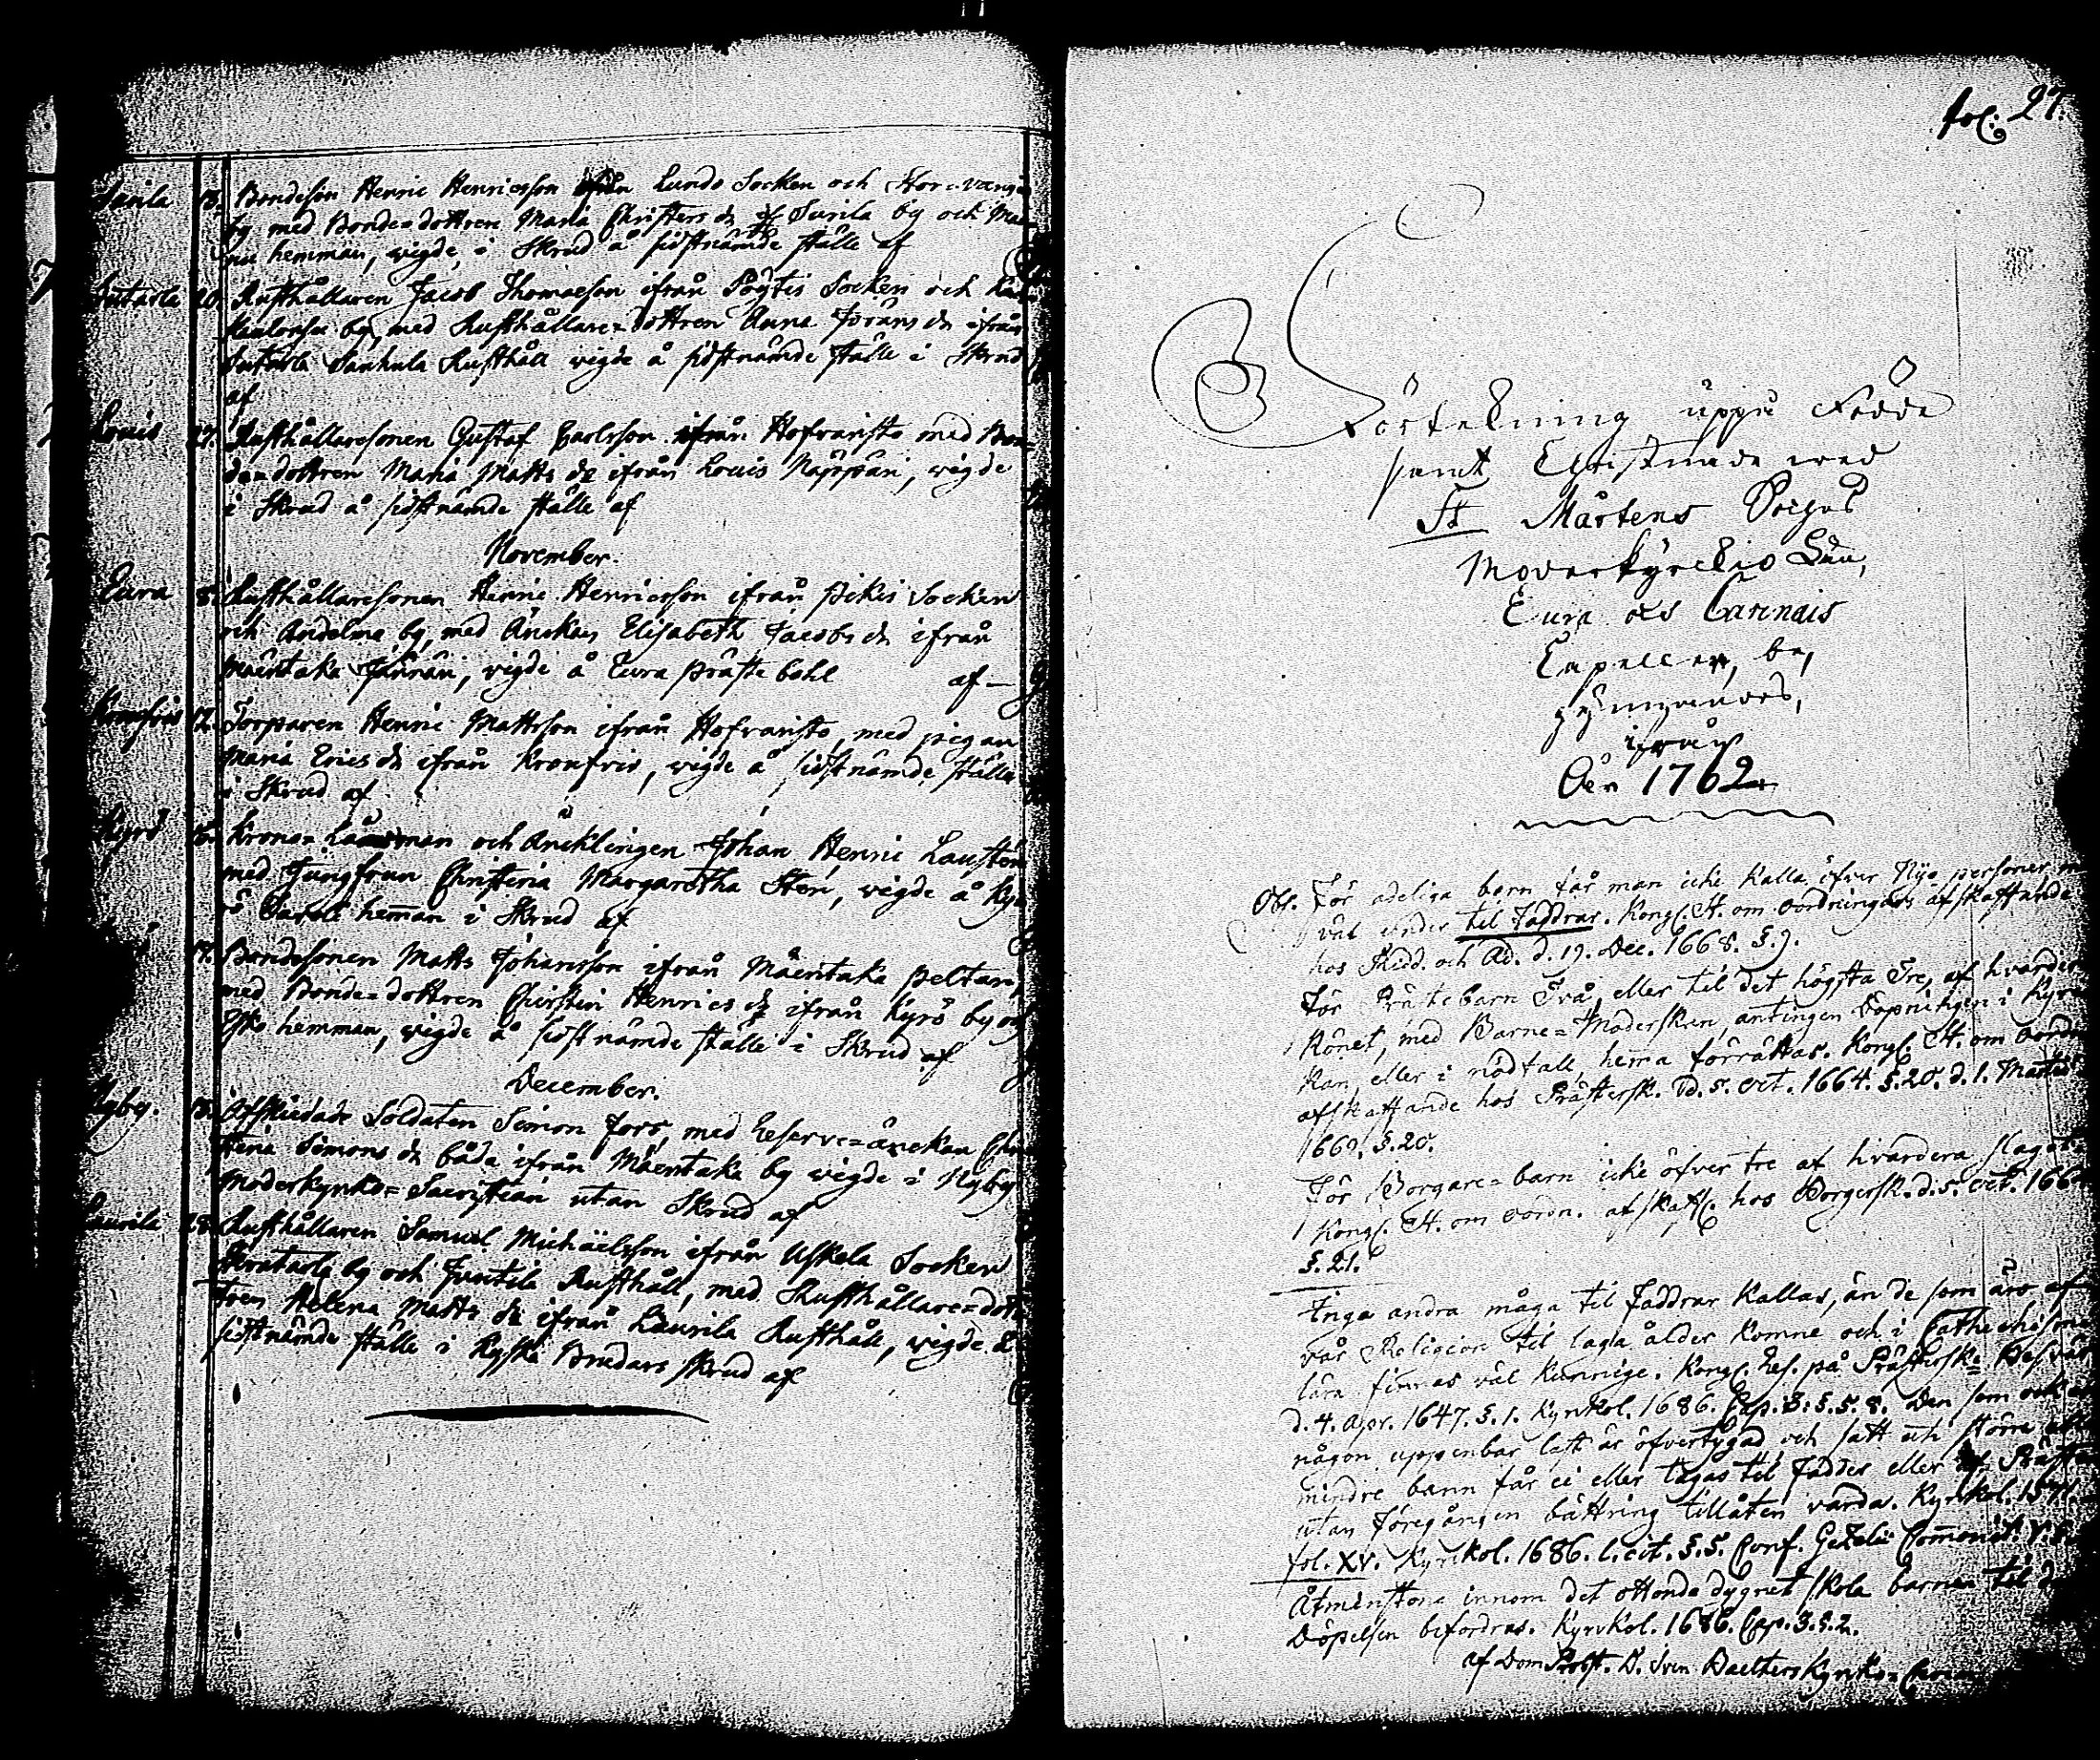 13. Bondeson Henric Henricsson ifrån Lundo Socken och
by med Bonde=dottren Maria Christers dr af Surila by och
hemman, wigde i Skrud å sidstnämde ställe af
20. Rusthållaren Jacob Thomaeson ifrån Pöytis Socken och
by, med Rusthållare=dottren Anna Jörans dr ifrån
Rusthåll wigde å sidstnämde ställe i Skrud
af
Louis 27. Rusthållaresonen Gustaf Carlsson ifrån Hofvaristo med Bon=
de=dottren Maria Matts dr ifrån Louis Näppäri, wigde
i Skrud å sidstnämde ställe af
November.
Eura 8. Rusthållaresonen Henric Henricsson ifrån Pikis Socken
och Andelma by, med Änckan Elisabeth Jacobs dr ifrån
Mäentaka wigde å Eura Präste bohl af —
Kronfris 12. Torparen Henric Mattsson ifrån Hofvaristo, med pigan
Maria Erics dr ifrån Kronfris, wigde å sidstnämde ställe
i Skrud af
Kyrö Krono=Länsman och Äncklingen Johan Henric Lausten
med Jungfrun Christina Margaretha Sten, wigde å Ky=
rö hemman i Skrud af
17. Bondesonen Matts Johansson ifrån Mäentaka Peltari,
med Bonde=dottren Christin Henrics dr ifrån Kyrö by och
Esko hemman, wigde å sidstnämde ställe i Skrud af
December.
Nyby. 13. Afskiedade Soldaten Simon Fors, med Reserve=änckan
Simons dr båda ifrån Mäentaka by wigde i Nyby
Moderkyrko=Sacristian utan Skrud af
Laurila 28. Rusthållaren Samuel Michaëlsson ifrån Uskela Socken
by och Rusthåll, med Rusthållare=dot=
tren Helena Matts dr ifrån Laurila Rusthåll, wigde å
sidstnämde ställe i Ryske Brudars skrud af
fol. 27.
Förtekning uppå Födde
samt Christnade wed
St Mårtens Sochns
Moderkyrckio
Eura och Carinais
Capeller, be,
gynnandes,
ifrån
Åhr 1762.
Obs. För adeliga barn får man icke kalla öfver Nijo personer,
til Faddrar. Kongl. St. om oordningars afskaffande
hos Ridd. och Ad. d. 19. Dec. 1668. §. 9.
För Prästebarn Två, eller til det högsta Tre, af hvardera
Könet, med Barne=Moderskan, antingen Döpningen i Kyr=
kan, eller i nödfall, hema förrättas. Kongl. St. om oordn.
afskaffande hos Prästersk. d. 5. Oct. 1664. §. 20. d. 1. Martii
1669. §. 20.
För Borgare=barn icke öfver tre af hvardera slaget
Kongl. St. om oordn. afskaff. hos Borgersk. d. 5. Oct. 166
§. 21.
Inga andra måga til Faddrar kallas, än de som äro af
vår Religion til laga ålder komne och i Cathechismi
lära finnas väl kunnige. Kongl. Res. på Prästersk. Besvär
d. 4. Apr. 1647. §. 1. Kyrkol. 1686. Cap. 3. §. 5. 8. Den som om
någon uppenbar last är öfvertygad, och satt ifrån större
mindre bann får ei eller tagas til Fadder eller af Prästen
utan föregången bättring tillåten varda. Kyrkol. 1571
fol. XV. Kyrkol. 1686. l. cit. §. 5. Conf. Gezelii
Åtminstone innom det ottonde dygnet skola barnen til
Döpelsen befordras. Kyrkol. 1686. Cap. 3. §. 2.
af DomProbst. D. Sven Baelters Kyrko=